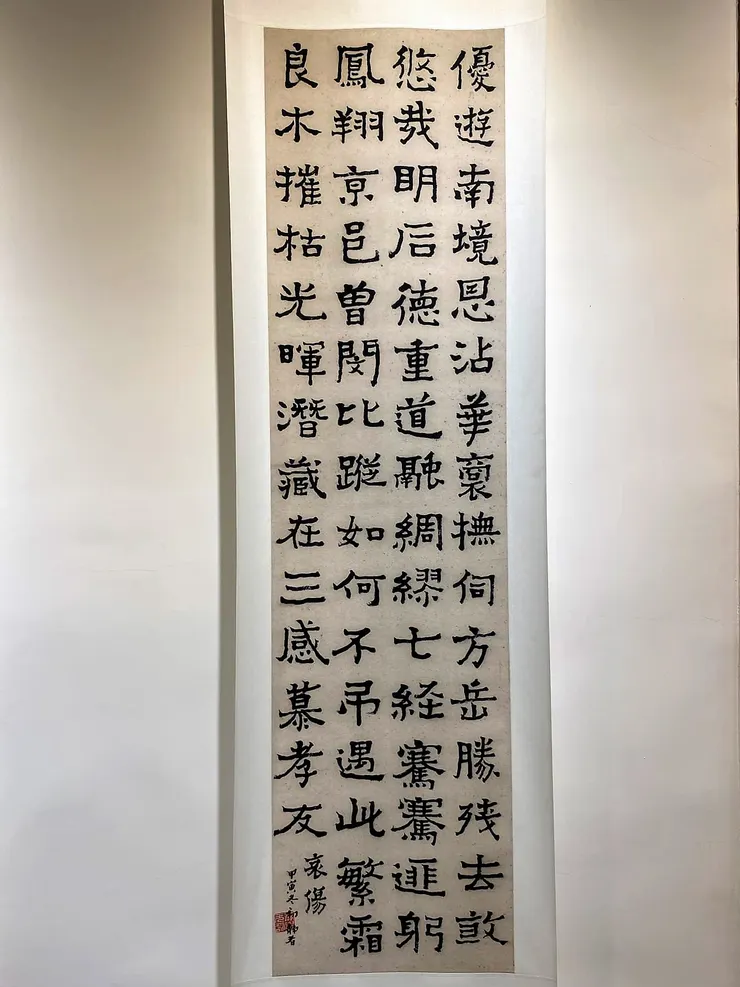 優遊南境恩沾華裔撫伺方岳勝残去敦
悠哉明后德重道融綢繆七経騫騫匪躬
鳳翔京邑曾閔比蹤如何不吊遇此繁霜
良木摧枯光暉潛藏在三感慕孝友
哀傷
甲寅冬初